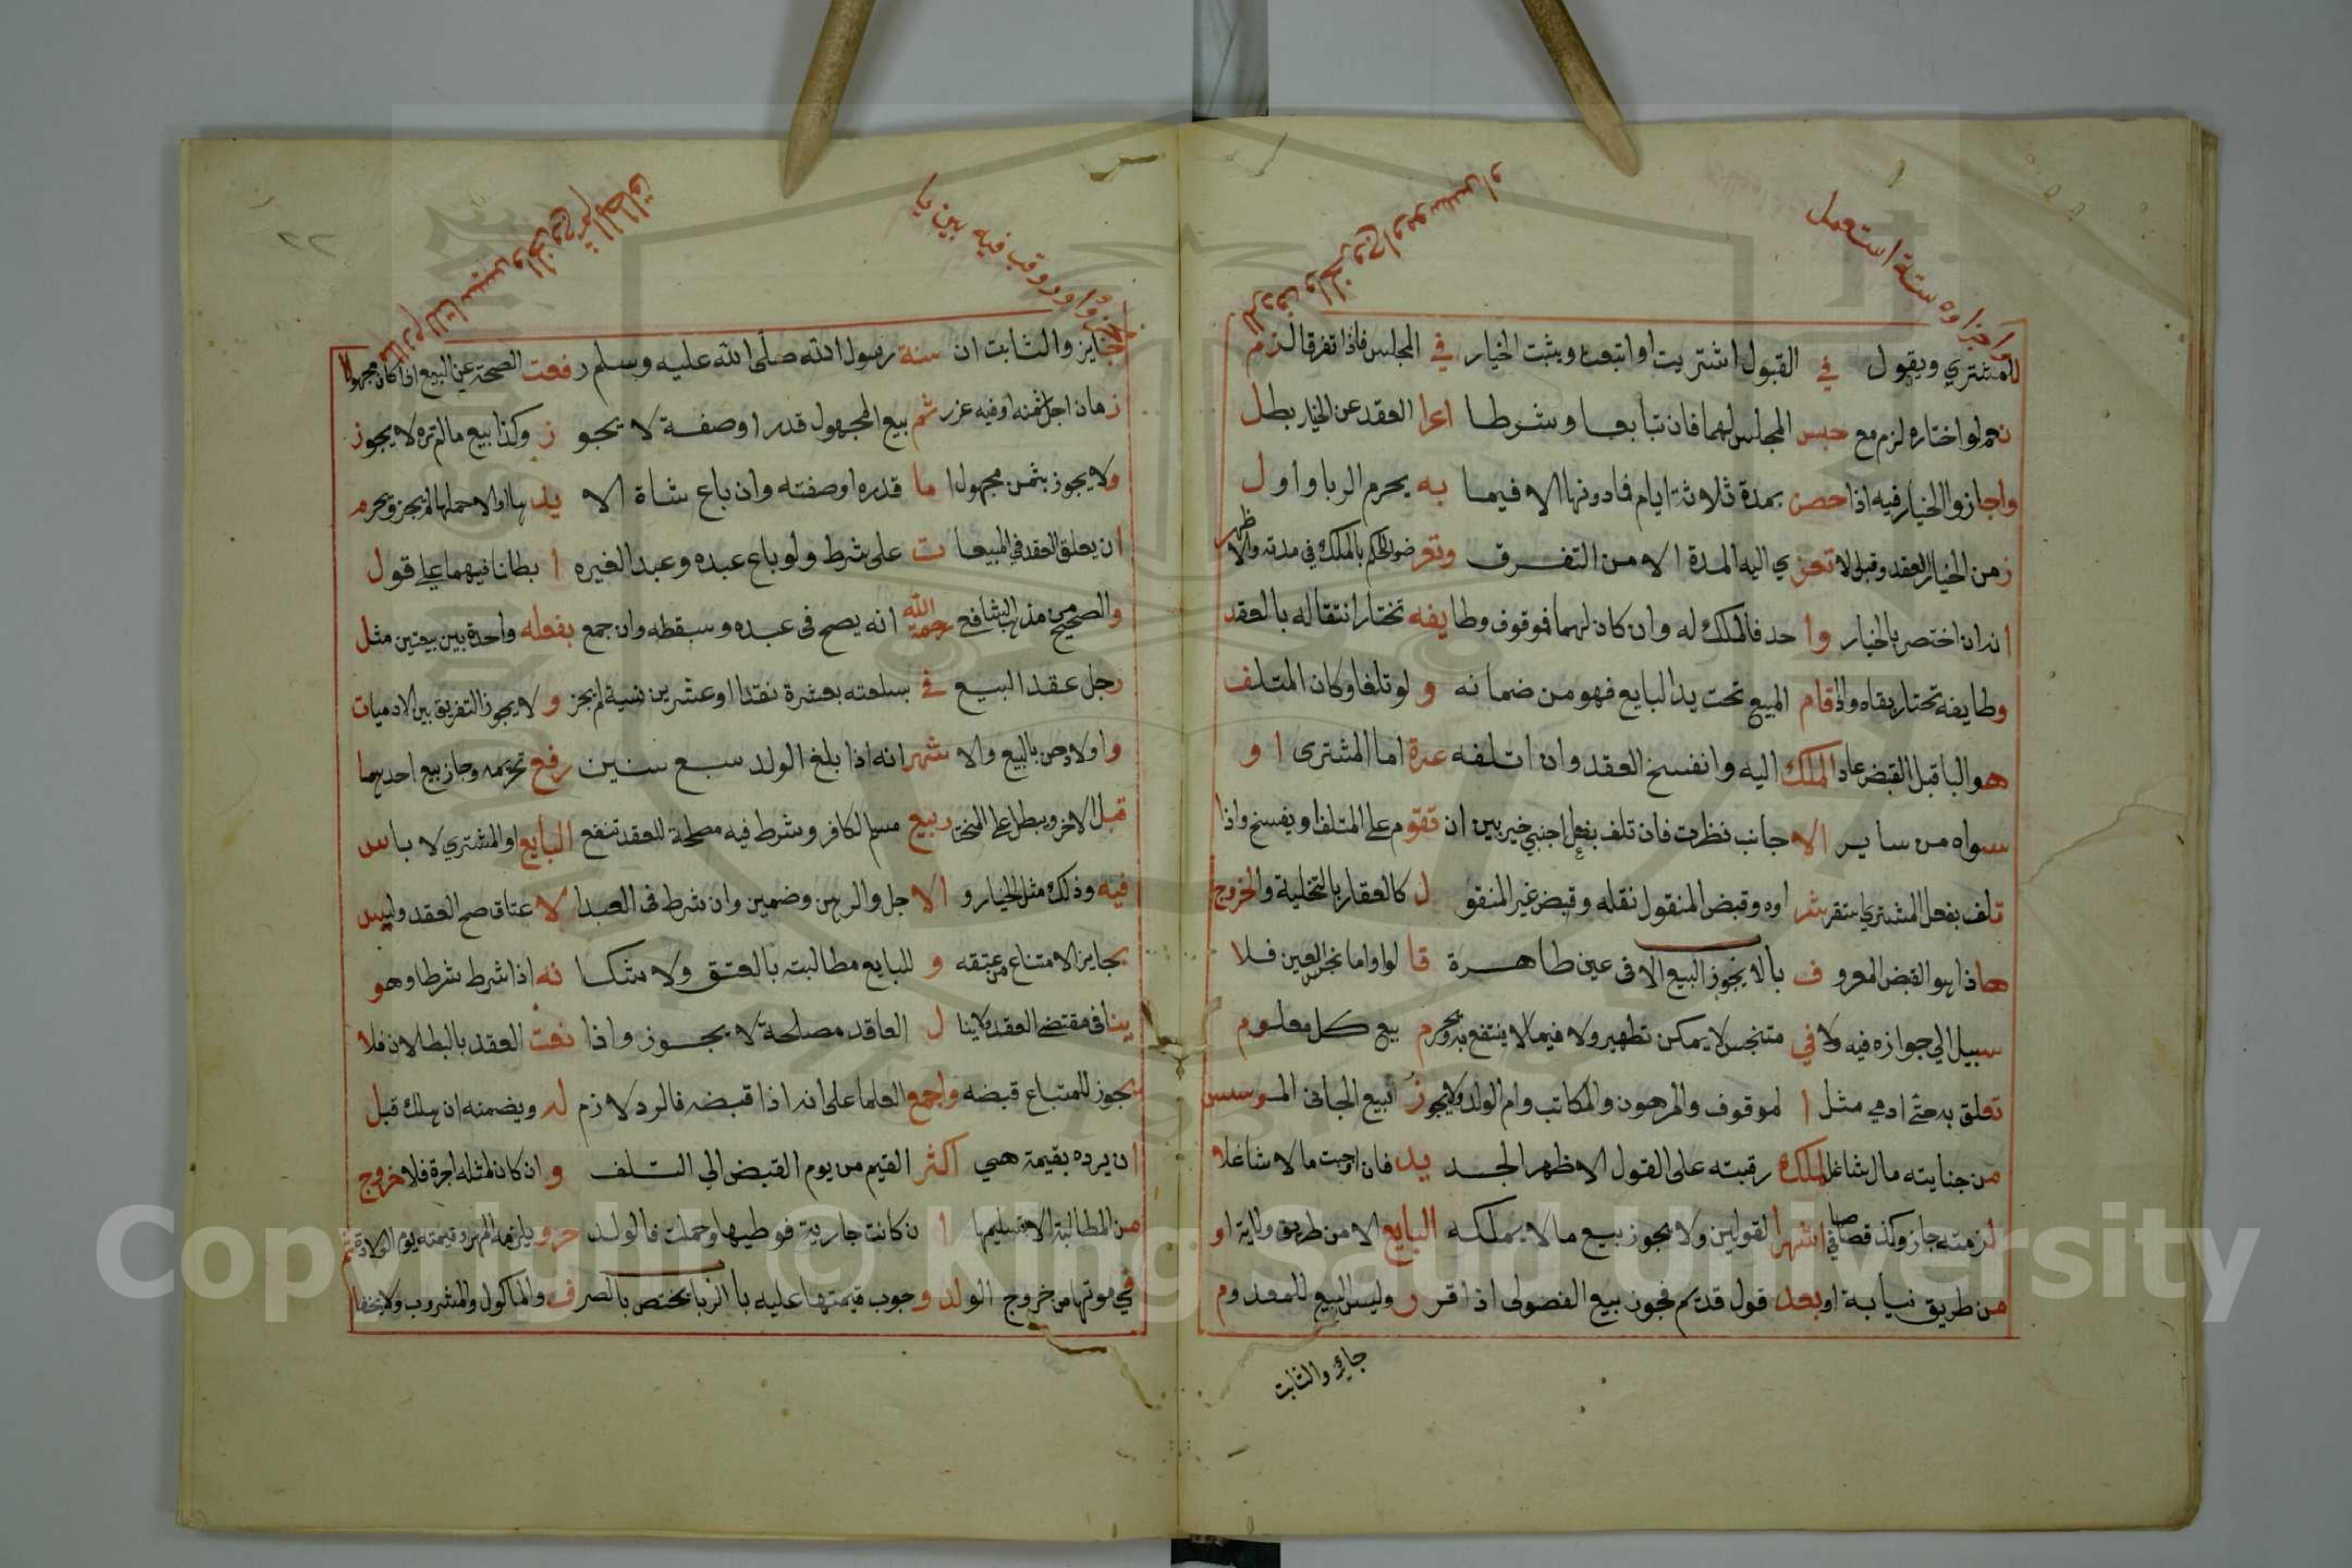 للمشتري ويقول في القبول اشتريت او ابتعت ويثبت الخيار في المجلس فاذا تفرقا لزم
نعم لو اختاره لزم مع حبس المجلس لهما فان تبايعا وشرطا اعرا العقد عن الخيار بطل
واجازوا الخيار فيه اذا حصن بمدة ثلاثة ايام فادونها الا فيما به يحرم الربا واول
زمن الخيار العقد وقيل لا تعزي اليه المدة الا من التفرق وتعرضوا لحكم بالملك في مدته والاظهر
انه ان اختص بالخيار واحد فالملك له وان كان لهما فموقوف وطايفه تختار انتقاله بالعقد
وطايفه تختار بقاه واذا قام المبيع تحت يد البايع فهو من ضمانه ولو تلفا وكان المتلف
هو البا قبل القبض عاد الملك اليه وانفسخ العقد وان اتلفه عدة اما المشترى او
سواه من ساير الاجانب نظرت فان تلف بفعل اجنبي خير بين ان تقوم على المتلف او يفسخ واذا
تلف بفعل المشتري استقر شراوه وقبض المنقول نقله وقبض غير المنقول كالعقار بالتخلية والخروج
هاذا هو القبض المعروف باب لا يجوز البيع الا فى عين طاهرة قالوا واما نجس العين فلا
سبيل الي جوازه فيه ولا في متنجس لا يمكن تطهيره ولا فيما لا ينتفع به ويحرم بيع كل معلوم
تعلق به حق ادمي مثل الموقوف والمرهون والمكاتب وام الولد ولا يجوز بيع الجانى الموسس
من جنايته مال شاغل لملك رقبته على القول الاظهر الجديد فان اوجبت مالا شاغلا
لزمته جاز وكذ قصاصا في اشهر القولين ولا يجوز بيع ما لا يملكه البايع الا من طريق ولاية او
من طريق نيابة او بعد قول قديم فجوز بيع الفضولى اذا قرر وليس البيع للمعدوم
جائز والثابت
جايز والثابت ان سنة رسول الله صلى الله عليه وسلم رفعت الصحة عن البيع اذا كان مجهولا
زمان اجل ثمنه او فيه غرر ثم بيع المجهول قدرا وصفة لا يجوز وكذا بيع مالم تره لا يجوز
ولا يجوز بثمن مجهول اما قدره او صفته وان باع شاة الا يدها او الا حملها لم يجز ويحرم
ان يعلق العقد في المبيعات على شرط ولو باع عبده وعبد الغيره ابطلنا فيهما على قول
والصحيح من مذهب الشافع رحمة الله انه يصح فى عبده وسبقطه وان جمع بفعله واحدة بين بيعتين مثل
رجل عقد البيع في سلعته بعشرة نقدا او عشرين نسية لم يجز ولا يجوز التفريق بين الادميات
واولادهن بالبيع والاشهر انه اذا بلغ الولد سبع سنين رفع تحريمه وجاز بيع احدهما
قبل الاخر ويبطل على المختار بيع مسلم الكافر وشرط فيه مصلحة للعقد تنفع البايع او المشتري لا باس
فيه وذلك مثل الخيار والاجل والرهن وضمين وان شرط فى العبد الاعتاق صح العقد وليس
بجايز الامتناع من عتقه وللبايع مطالبته بالعتق ولا شك انه اذا شرط شرطا وهو
ينافى مقتضى العقد ولا ينال العاقد مصلحة لا يجوز واذا نعت العقد بالبطلان فلا
يجوز للمبتاع قبضه واجمع العلما على انه اذا قبضه فالرد لازم له ويضمنه ان هلك قبل
ان يرده بقيمة هى اكثر القيم من يوم القبض الي التلف وان كان لمثله اجرة فلا خروج
من المطالبة الا بتسليمها وان كانت جارية فوطيها وحملت فالولد حر ويلزمه المهر وقيمته يوم الولادة ثم
في موتها من خروج الولد وجوب قيمتها عليه باب الربا يختص بالصرف والماكول والمشروب ولا يخفا